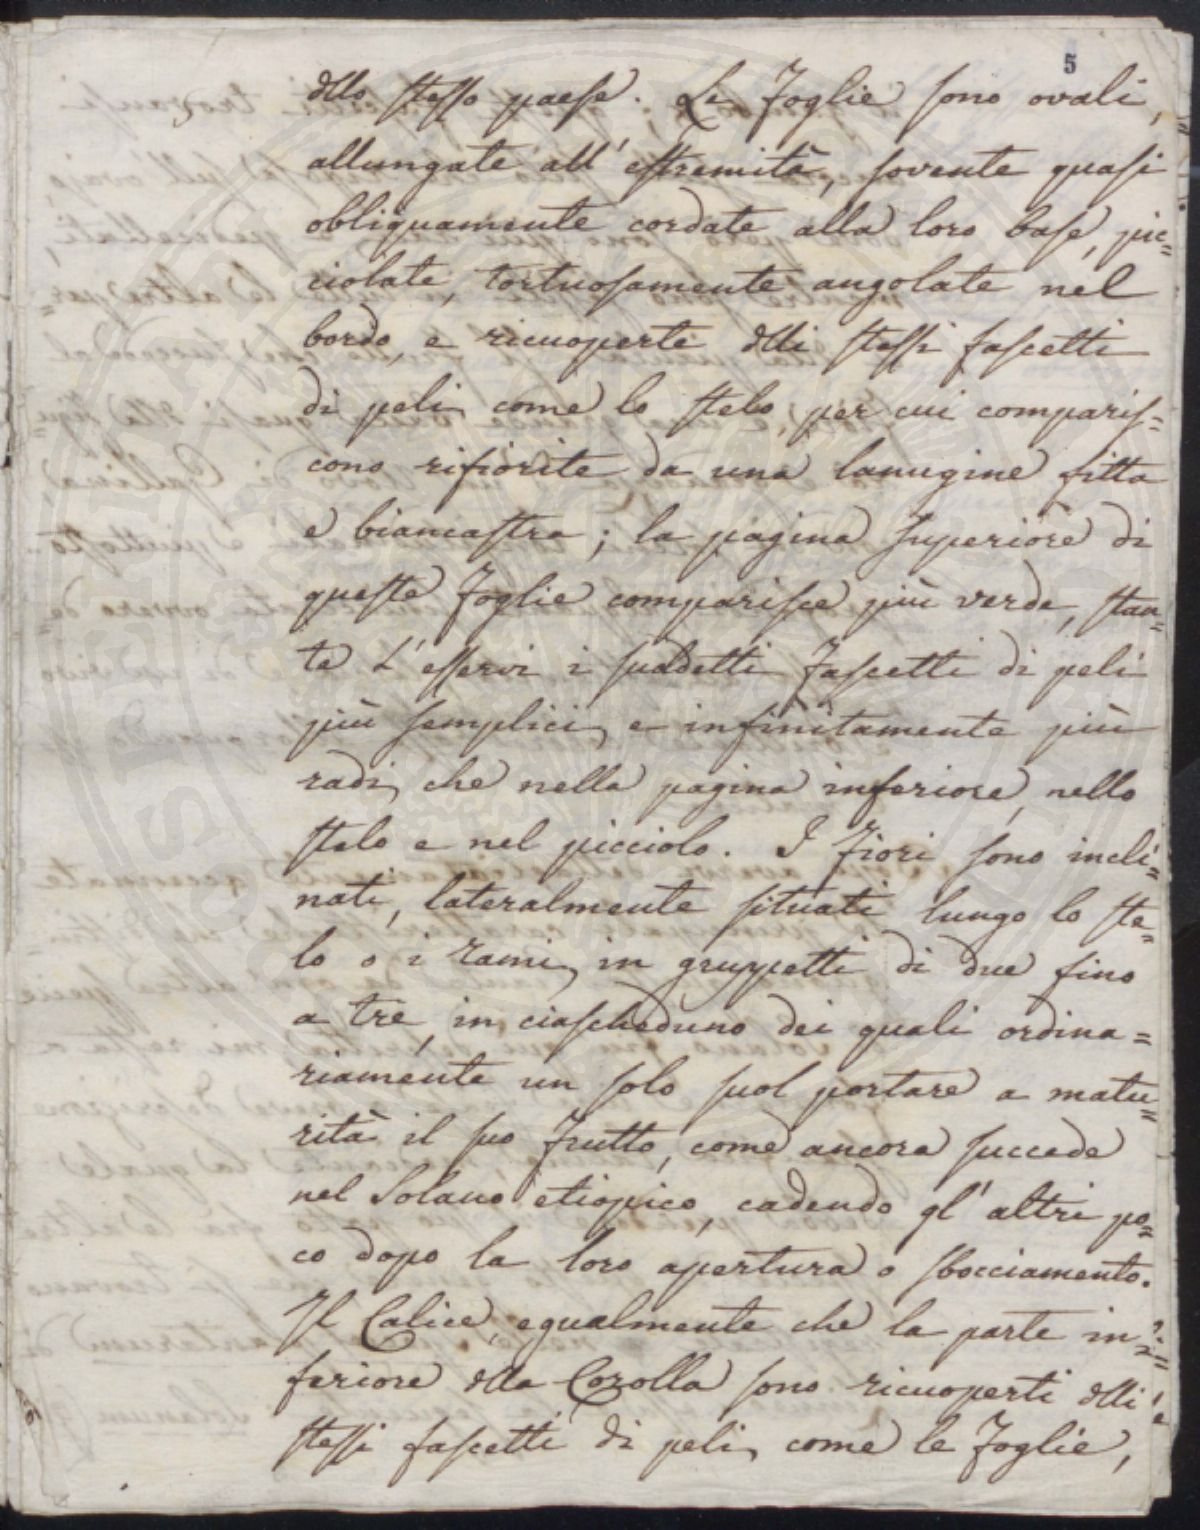 5
dllo stesso paese. Le Foglie sono ovali,
allungate all' estremità, sovente quasi
obliquamente cordate alla loro base, pic=
ciolate, tortuosamente angolate nel
bordo, e ricuoperte dlli stessi fascetti
di peli, come lo stelo, per cui comparis=
cono rifiorite da una lanugine fitta
e biancastra; la pagina superiore di
queste Foglie comparisce più verde, stan=
te l'esservi i suddetti Fascetti di peli
più semplici, e infinitamente più
radi, che nella pagina inferiore, nello
stelo e nel picciolo. I Fiori sono incli=
nati, lateralmente situati lungo lo ste=
lo o i rami, in gruppetti di due fino
a tre, in ciascheduno dei quali ordina=
riamente un solo suol portare a matu=
rità il suo Frutto, come ancora succede
nel Solano etiopico, cadendo gl' altri po=
co dopo la loro apertura o sbocciamento.
Il Calice, egualmente che la parte in=
feriore dlla Corolla sono ricuoperti dlli
stessi fascetti di peli, come le Foglie,